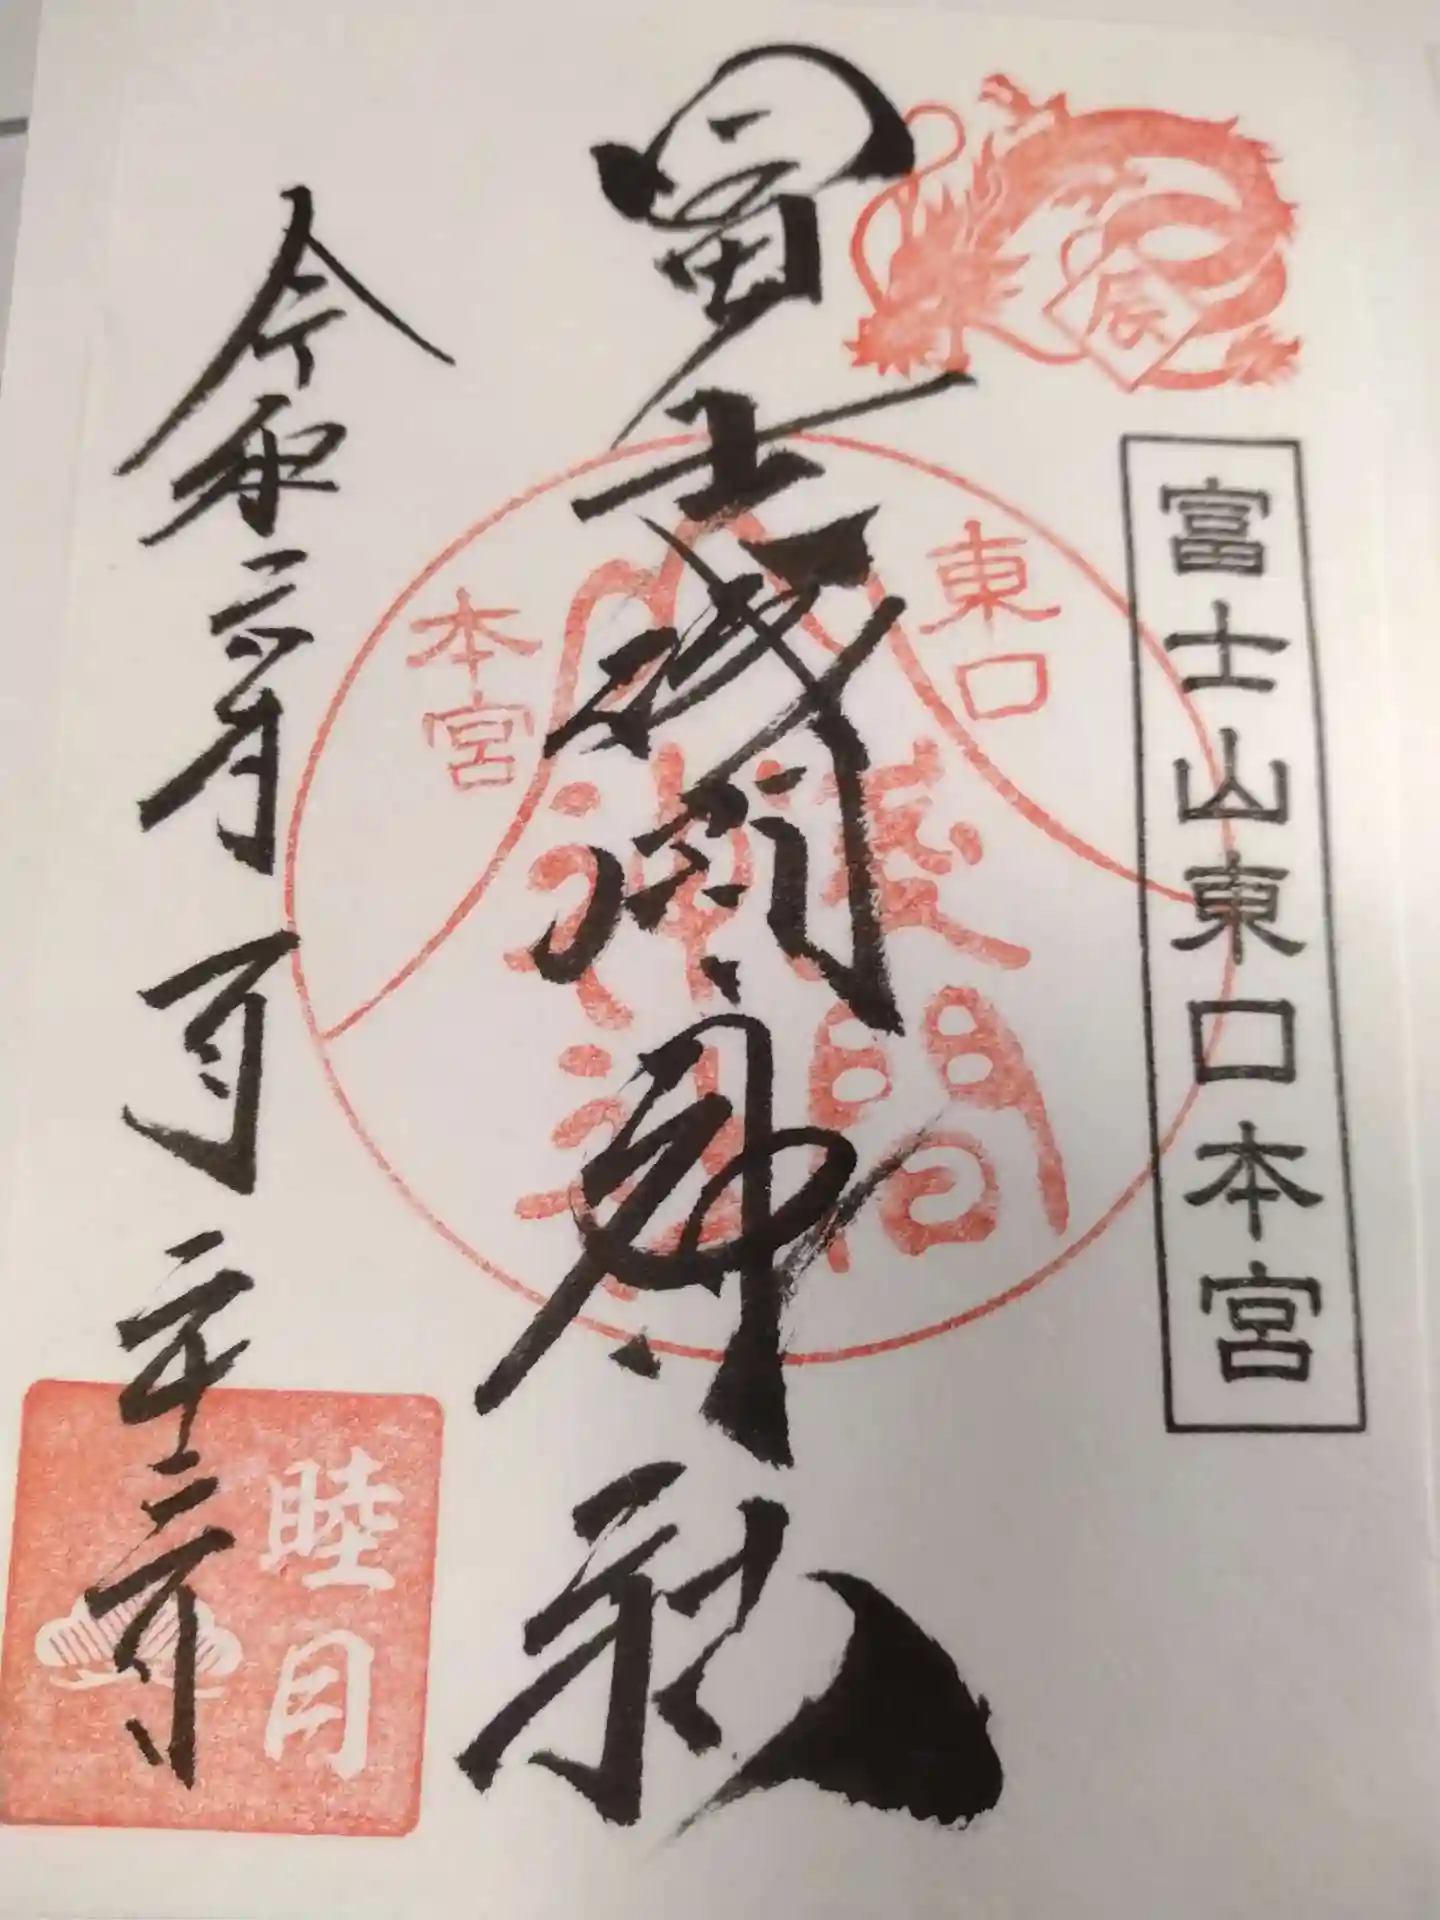 辰
富士山東口本宮
冨士浅間神社
東口
本宮
淺間
神社
令和六年一月二十
睦月